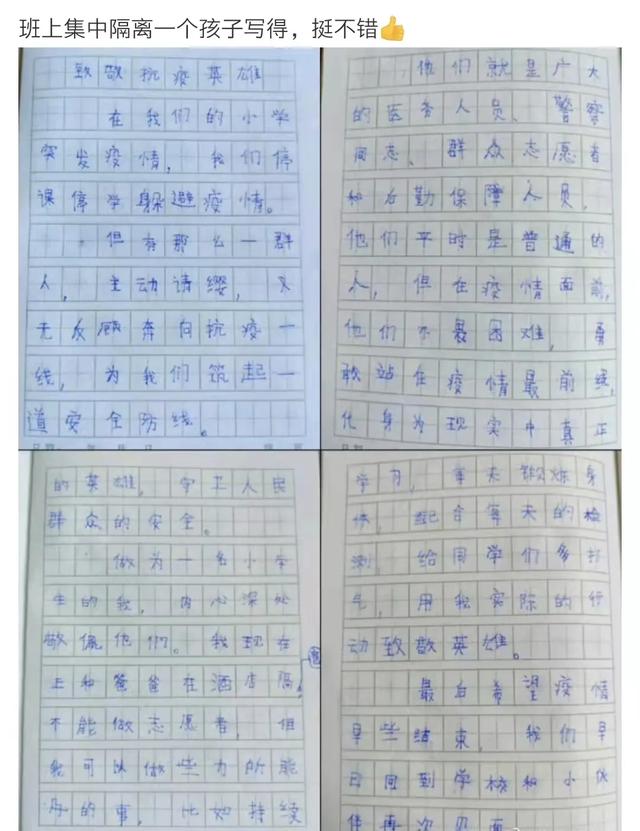 班上集中隔离一个孩子写得，挺不错👍
致敬抗疫英雄
在我们的小学
突发疫情，我们停
课停学躲避疫情。
但有那么一群
人，主动请缨，义
无反顾奔向抗疫一
线，为我们筑起一
道安全防线。
他们就是广大
的医务人员、警察
同志、群众志愿者
和后勤保障人员，
他们平时是普通的
人，但在疫情面前，
他们不畏困难，勇
敢站在疫情最前线，
化身为现实中真正
的英雄，守卫人民
群众的安全。
做为一名小学
生的我，内心深处
敬佩他们。我现在
正和爸爸在酒店隔
离
不能做志愿者，但
我可以做些力所能
及的事，比如持续
学习，每天锻炼身
体，配合每天的检
测，给同学们多打
气，用我实际的行
动致敬英雄。
最后希望疫情
早些结束，我们早
日回到学校和小伙
伴再次见面